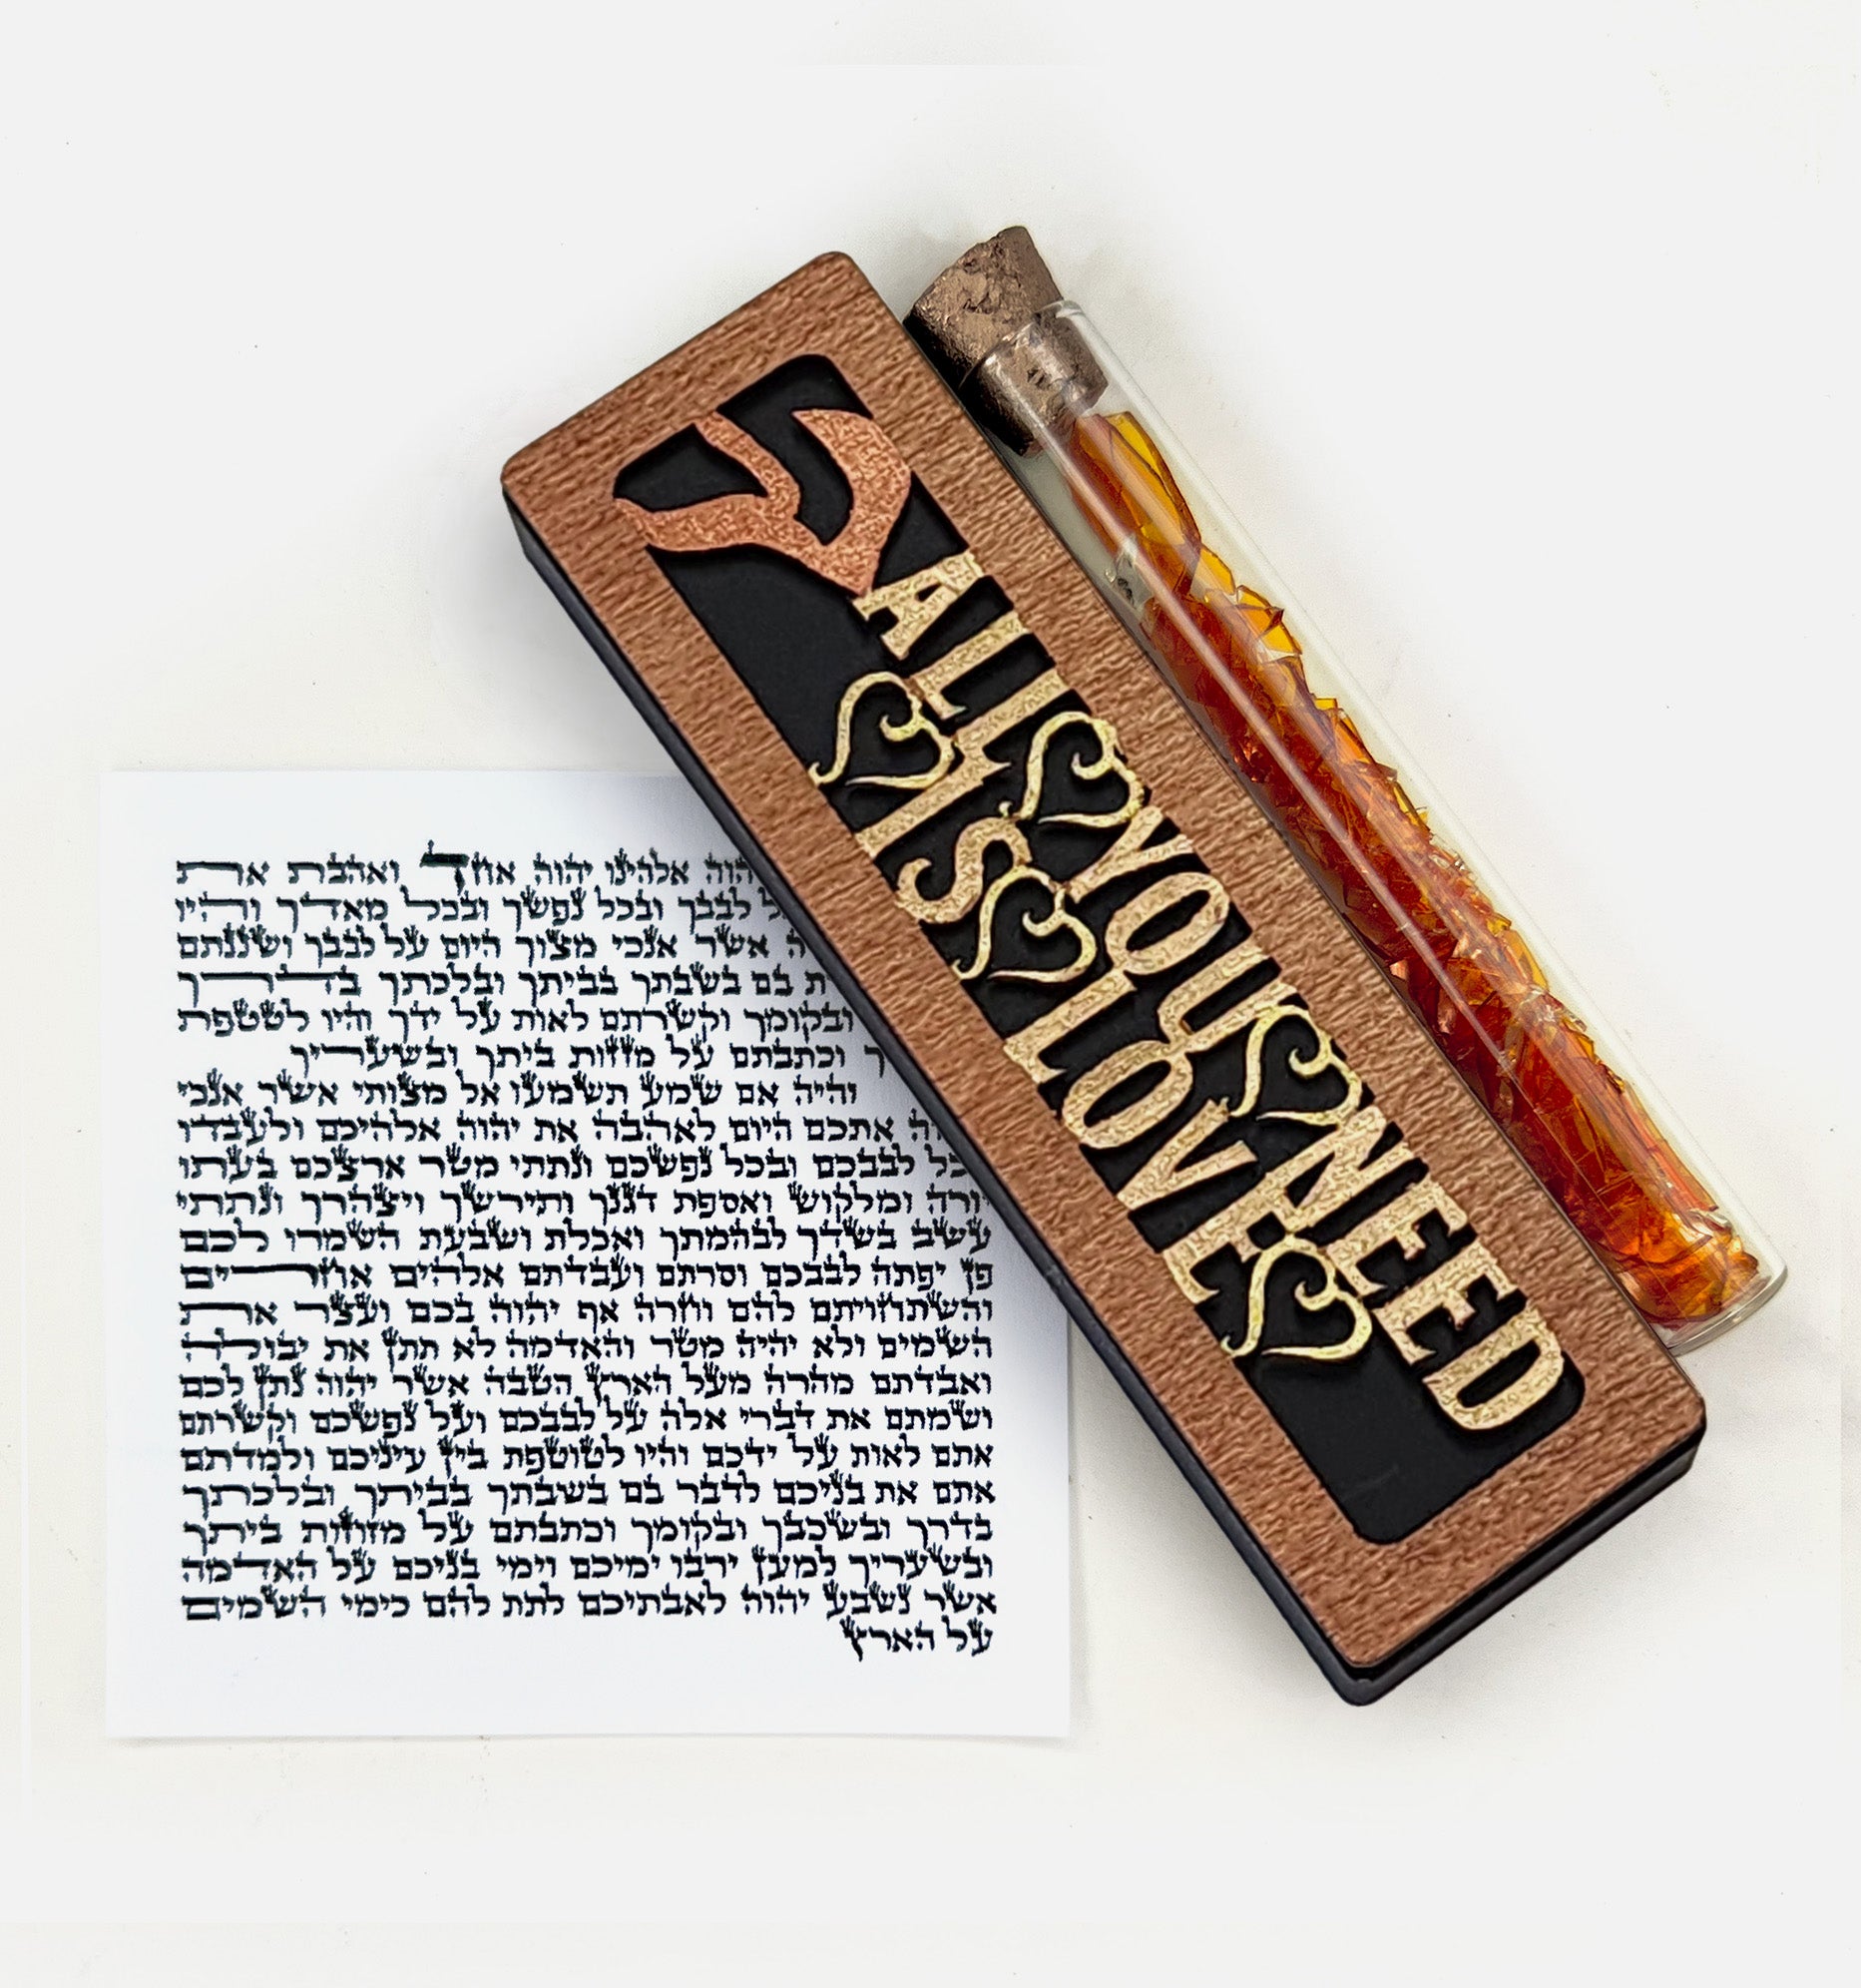 ש
ALL YOU NEED
IS LOVE
אלהינו יהוה אחד ואהבת את
לבבך ובכל נפשך ובכל מאדך והיו
אשר אנכי מצוך היום על לבבך ושננתם
בם בשבתך בביתך ובלכתך בדרך
ובקומך וקשרתם לאות על ידך והיו לטטפת
וכתבתם על מזזות ביתך ובשעריך
והיה אם שמע תשמעו אל מצותי אשר אנכי
אתכם היום לאהבה את יהוה אלהיכם ולעבדו
לבבכם ובכל נפשכם ונתתי מטר ארצכם בעתו
יורה ומלקוש ואספת דגנך ותירשך ויצהרך ונתתי
עשב בשדך לבהמתך ואכלת ושבעת השמרו לכם
פן יפתה לבבכם וסרתם ועבדתם אלהים אחרים
והשתחויתם להם וחרה אף יהוה בכם ועצר את
השמים ולא יהיה מטר והאדמה לא תתן את יבולה
ואבדתם מהרה מעל הארץ הטבה אשר יהוה נתן לכם
ושמתם את דברי אלה על לבבכם ועל נפשכם וקשרתם
אתם לאות על ידכם והיו לטוטפת בין עיניכם ולמדתם
אתם את בניכם לדבר בם בשבתך בביתך ובלכתך
בדרך ובשכבך ובקומך וכתבתם על מזוזות ביתך
ובשעריך למען ירבו ימיכם וימי בניכם על האדמה
אשר נשבע יהוה לאבתיכם לתת להם כימי השמים
על הארץ